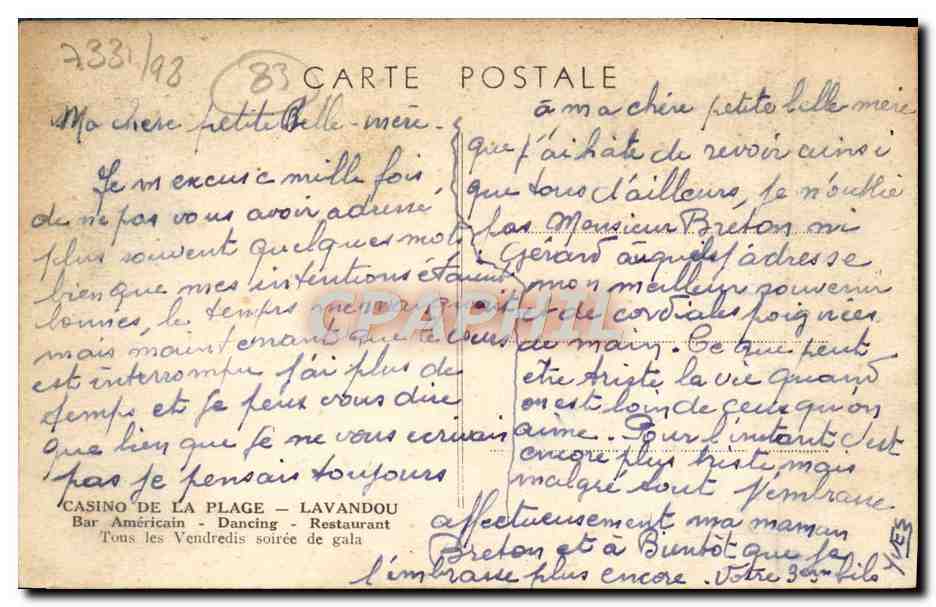 7331/98
83
CARTE POSTALE
Ma chere petite Belle-mère.
Je m'excuse mille fois
de ne pas vous avoir adressé
plus souvent quelques mots
bien que mes intentions étaient
bonnes, le temps me manquait
mais maintenant que le cours
est interrompu j'ai plus de
temps et je peux vous dire
que bien que je ne vous écrivais
pas je pensais toujours
à ma chère petite belle mère
que j'ai hate de revoir ainsi
que tous d'ailleurs, je n'oublie
pas Monsieur Breton ni
Gérard auquels j'adresse
mon meilleur souvenir
et de cordiales poignées
de main. Ce que peut
etre triste la vie quand
on est loin de ceux qu'on
aime. Pour l'instant c'est
encore plus triste mais
malgré tout j'embrasse
affectueusement ma maman
Breton et à Bientôt que je
l'embrasse plus encore. Votre 3eme fils
YVES
CASINO DE LA PLAGE — LAVANDOU
Bar Américain - Dancing - Restaurant
Tous les Vendredis soirée de gala
CPAPHIL